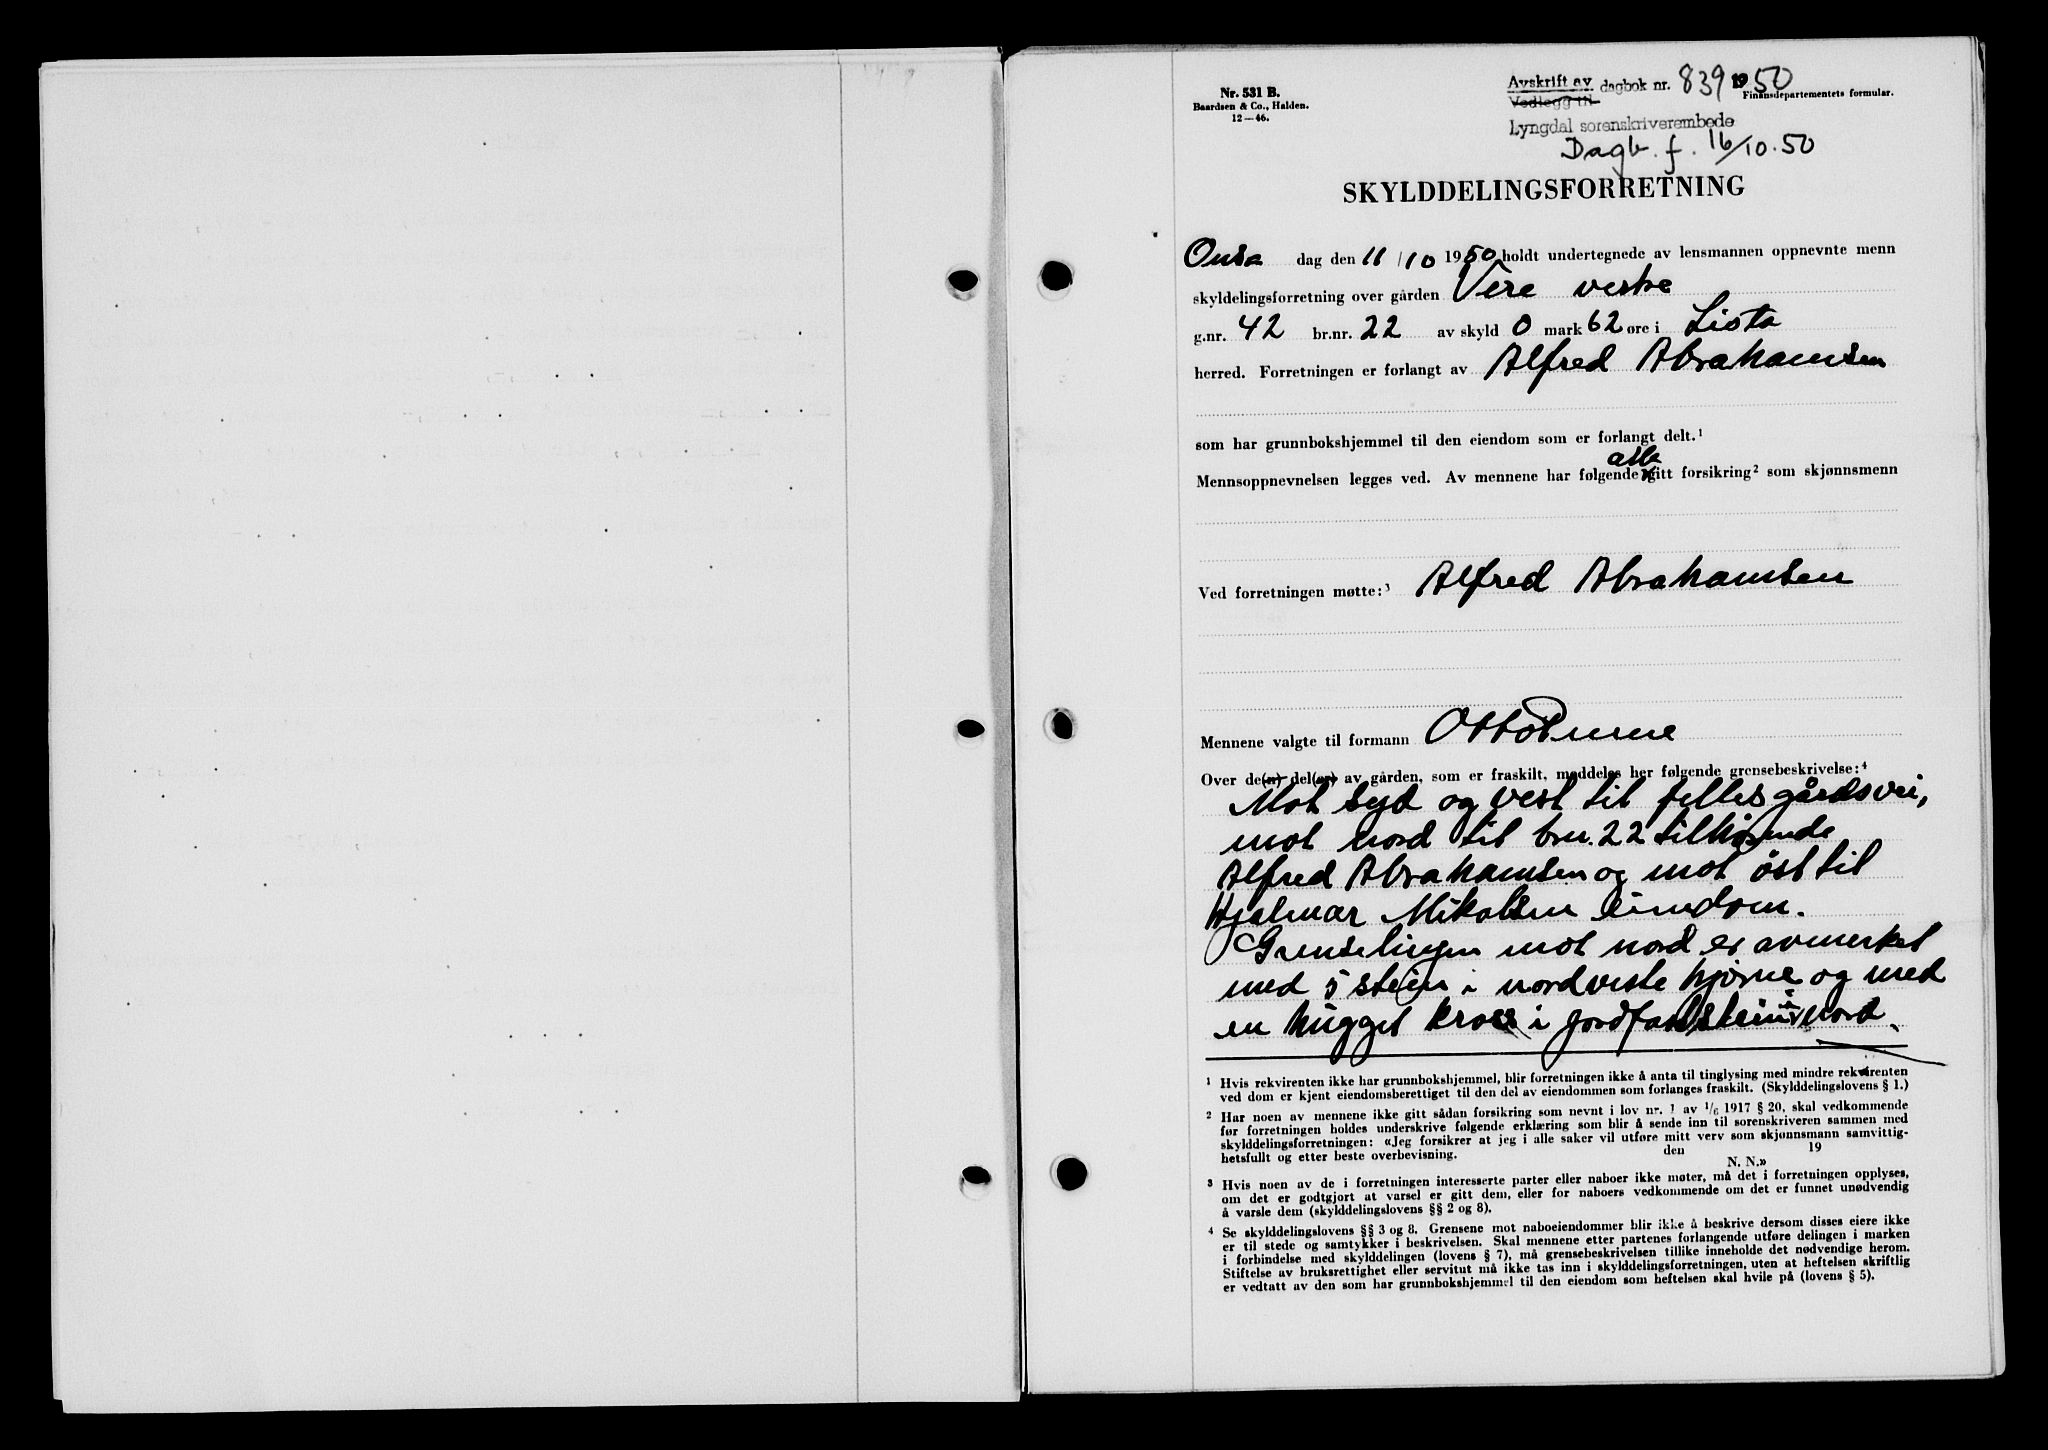 Nr. 531 B.
Baardsen & Co., Halden.
12—46.
Avskrift av dagbok nr. 839 1950
Vedlegg til
Finansdepartementets formular.
Lyngdal sorenskriverembede
Dagb. f. 16/10.50
SKYLDDELINGSFORRETNING
Onsdag den 11/10 1950 holdt undertegnede av lensmannen oppnevnte menn
skyldelingsforretning over gården Vere vestre
g.nr. 42 br.nr. 22 av skyld 0 mark 62 øre i Lista
herred. Forretningen er forlangt av Alfred Abrahamsen
som har grunnbokshjemmel til den eiendom som er forlangt delt.¹
alle
Mennsoppnevnelsen legges ved. Av mennene har følgende gitt forsikring² som skjønnsmenn
Ved forretningen møtte:³ Alfred Abrahamsen
Mennene valgte til formann Otto
Over de(n) del(er) av gården, som er fraskilt, meddeles her følgende grensebeskrivelse:⁴
Mot syd og vest til felles gårdsvei,
mot nord til brn. 22 tilhørende
Alfred Abrahamsen og mot öst til
Hjalmar Mikalsen eiendom.
Grenselinjen mot nord er avmerket
med 5 stein i nordveste hjörne og med
en hugget kross i jordfast stein i nord.
¹ Hvis rekvirenten ikke har grunnbokshjemmel, blir forretningen ikke å anta til tinglysing med mindre rekvirenten
ved dom er kjent eiendomsberettiget til den del av eiendommen som forlanges fraskilt. (Skylddelingslovens § 1.)
² Har noen av mennene ikke gitt sådan forsikring som nevnt i lov nr. 1 av 1/6 1917 § 20, skal vedkommende
før forretningen holdes underskrive følgende erklæring som blir å sende inn til sorenskriveren sammen med
skylddelingsforretningen: «Jeg forsikrer at jeg i alle saker vil utføre mitt verv som skjønnsmann samvittig-
hetsfullt og etter beste overbevisning. den 19
N. N.»
³ Hvis noen av de i forretningen interesserte parter eller naboer ikke møter, må det i forretningen opplyses,
om det er godtgjort at varsel er gitt dem, eller for naboers vedkommende om det er funnet unødvendig
å varsle dem (skylddelingslovens §§ 2 og 8).
⁴ Se skylddelingslovens §§ 3 og 8. Grensene mot naboeiendommer blir ikke å beskrive dersom disses eiere ikke
er til stede og samtykker i beskrivelsen. Skal mennene etter partenes forlangende utføre delingen i marken
i forbindelse med skylddelingen (lovens § 7), må grensebeskrivelsen tillike inneholde det nødvendige herom.
Stiftelse av bruksrettighet eller servitut må ikke tas inn i skylddelingsforretningen, uten at heftelsen skriftlig
er vedtatt av den som har grunnbokshjemmel til den eiendom som heftelsen skal hvile på (lovens § 5).